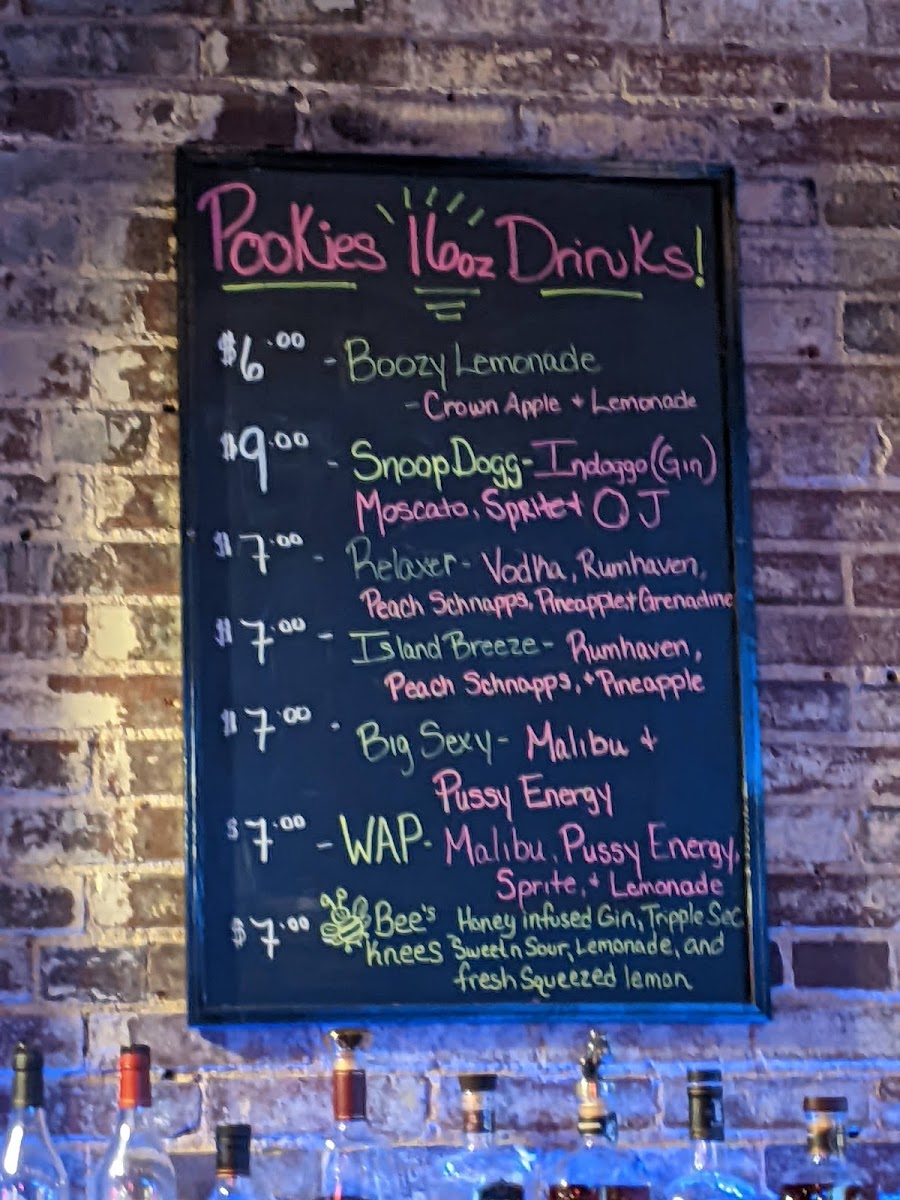 Pookies 16oz Drinks!
$6.00 - Boozy Lemonade
- Crown Apple + Lemonade
$9.00 - Snoop Dogg - Indoggo (Gin)
Moscato, Sprite + OJ
$7.00 - Relaxer - Vodka, Rumhaven,
Peach Schnapps, Pineapple + Grenadine
$7.00 - Island Breeze - Rumhaven,
Peach Schnapps, + Pineapple
$7.00 - Big Sexy - Malibu +
Pussy Energy
$7.00 - WAP - Malibu, Pussy Energy,
Sprite, + Lemonade
$7.00 Bee's Honey infused Gin, Tripple Sec
Knees Sweet n Sour, Lemonade, and
fresh Squeezed lemon